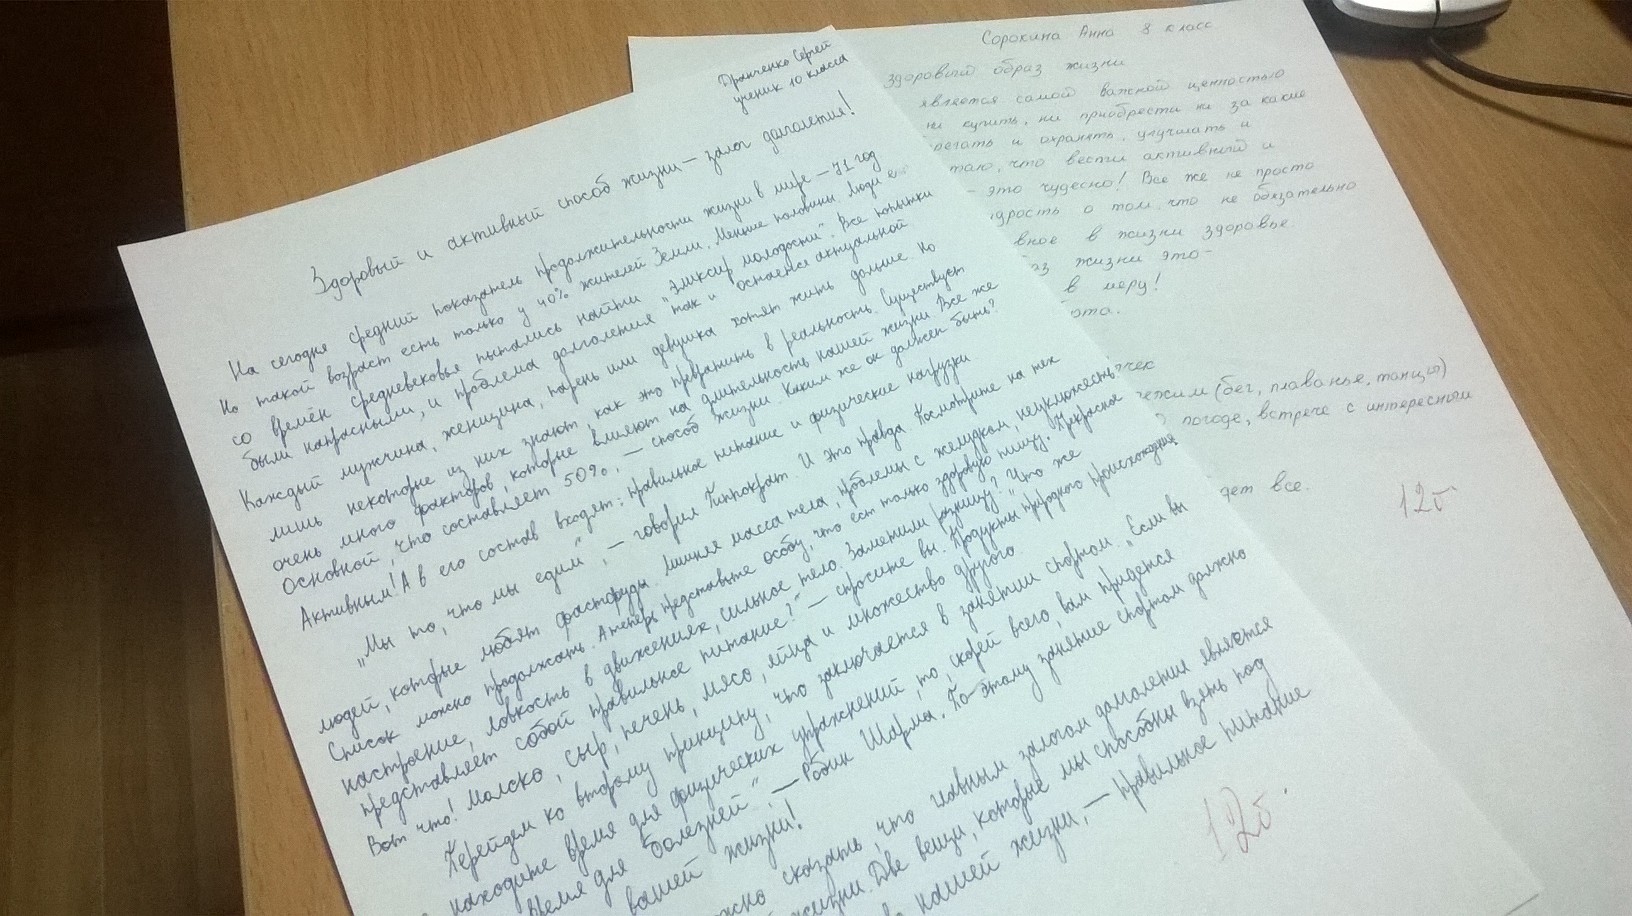 Дранченко Сергей
ученик 10 класса
Здоровый и активный способ жизни — залог долголетия!
На сегодня средний показатель продолжительности жизни в мире — 71 год
Но такой возраст есть только у 40% жителей Земли. Меньше половины. Люди е
со времён средневековья пытались найти "Эликсир молодости". Все попытки
были напрасными, и проблема долголетия так и остается актуальной.
Каждый мужчина, женщина, парень или девушка хотят жить дольше. Но
лишь некоторые из них знают, как это превратить в реальность. Существует
очень много факторов, которые влияют на длительность нашей жизни. Все же
Основной, что составляет 50%, — способ жизни. Каким же он должен быть?
Активным! А в его состав входят: правильное питание и физические нагрузки
„Мы то, что мы едим", — говорил Гиппократ. И это правда. Посмотрите на тех
людей, которые любят фастфуды. Лишняя масса тела, проблемы с желудком, неуклюжесть
Список можно продолжать. А теперь представьте особу, что ест только здоровую пищу. Прекрасное
настроение, ловкость в движениях, сильное тело. Заметили разницу? "Что же
представляет собой правильное питание?" — спросите вы. Продукты природного происхождения
Вот что! Молоко, сыр, печень, мясо, яйца и множество другого.
Перейдем ко второму принципу, что заключается в занятии спортом. „Если вы
находите время для физических упражнений, то, скорей всего, вам придется
время для болезней", — Робин Шарма. По-этому занятие спортом должно
вашей жизни!
жно сказать, что главным залогом долголетия является
жизни. Две вещи, которые мы способны взять под
нашей жизни, — правильное питание
12б.
Сорокина Анна 8 класс
Здоровый образ жизни
является самой важной ценностью
ни купить, ни приобрести ни за какие
регать и охранять, улучшать и
таю, что вести активный и
— это чудесно! Все же не просто
дрость о том, что не обязательно
вное в жизни здоровье.
аз жизни это-
в меру!
ота.
чек
ежим (бег, плаванье, танцы)
погоде, встрече с интересным
дет все.
12б